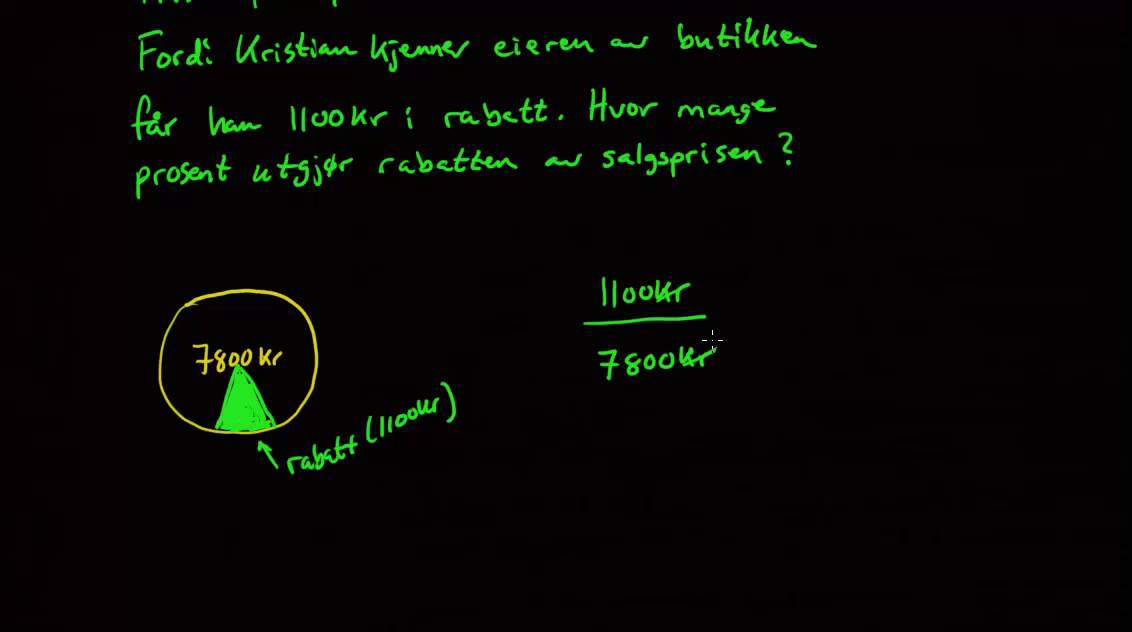 Fordi Kristian kjenner eieren av butikken
får han 1100kr i rabatt. Hvor mange
prosent utgjør rabatten av salgsprisen?
7800kr
rabatt (1100kr)
1100kr
7800kr